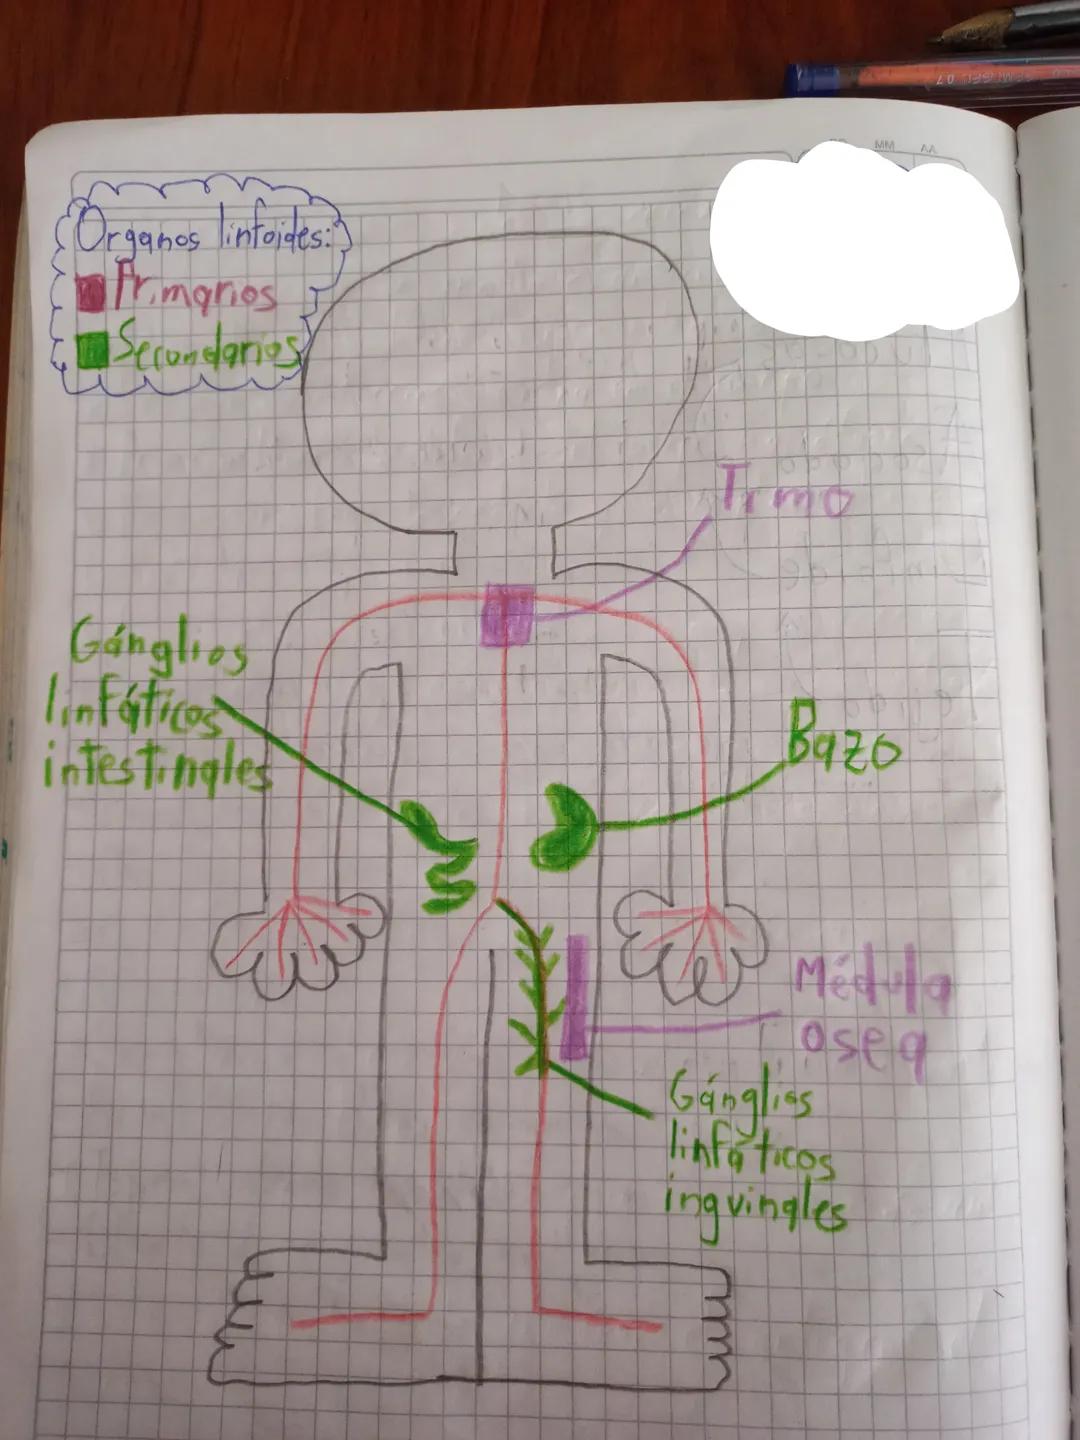 AA
MM
Organos linfoides:
Primarios
Secundarios
Timo
Gánglios
linfáticos
intestinales
Bazo
Médula
osea
Gánglios
linfáticos
inguinales